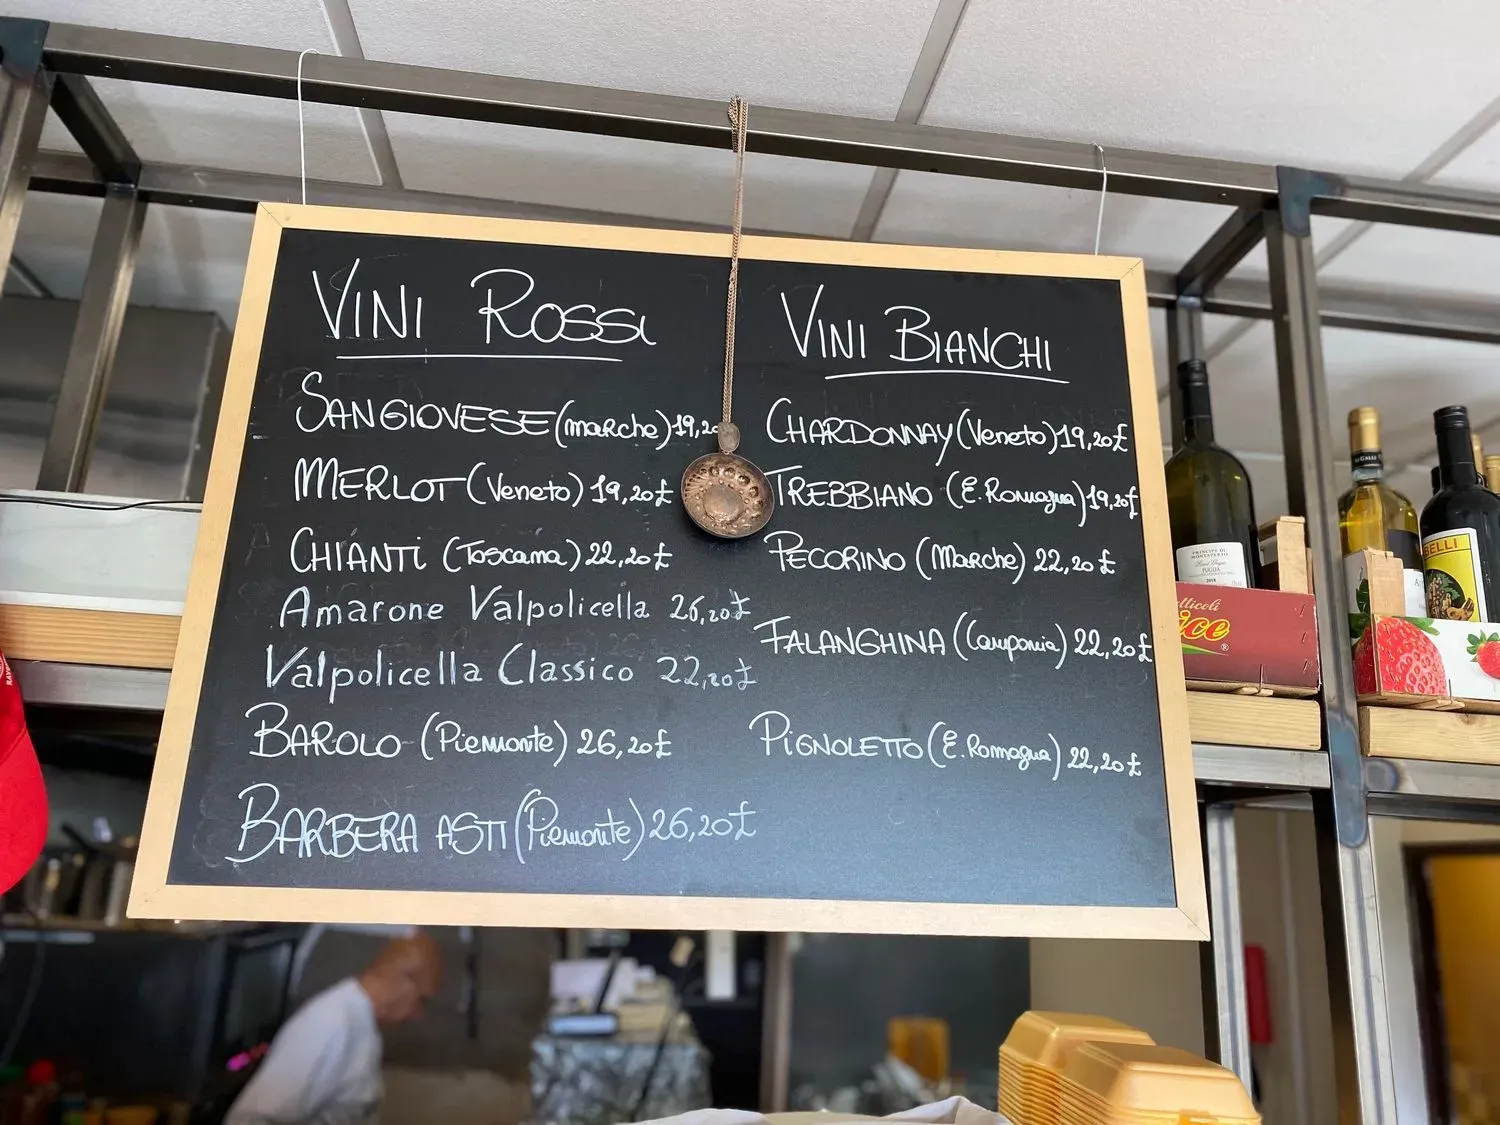 VINI ROSSI
SANGIOVESE (MARCHE) 19,20
MERLOT (Veneto) 19,20£
CHIANTI (Toscana) 22,20£
Amarone Valpolicella 26,20£
Valpolicella Classico 22,20£
BAROLO (Piemonte) 26,20£
BARBERA ASTI (Piemonte) 26,20£
VINI BIANCHI
CHARDONNAY (Veneto) 19,20£
TREBBIANO (E. Romagna) 19,20£
PECORINO (Marche) 22,20£
FALANGHINA (Campania) 22,20£
PIGNOLETTO (E. Romagna) 22,20£
PRINCIPE DI
MONTAPERTO
PUGLIA
ELLI